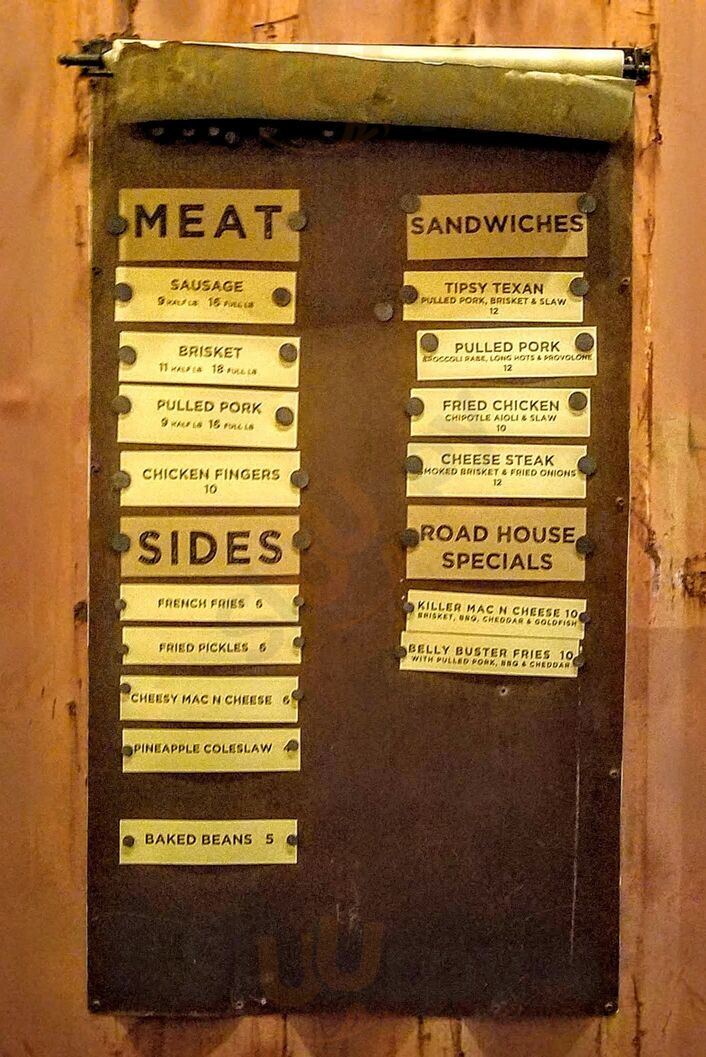 MEAT
SAUSAGE
9 HALF LB 16 FULL LB
BRISKET
11 HALF LB 18 FULL LB
PULLED PORK
9 HALF LB 16 FULL LB
CHICKEN FINGERS
10
SIDES
FRENCH FRIES 6
FRIED PICKLES 6
CHEESY MAC N CHEESE 6
PINEAPPLE COLESLAW 4
BAKED BEANS 5
SANDWICHES
TIPSY TEXAN
PULLED PORK, BRISKET & SLAW
12
PULLED PORK
BROCCOLI RABE, LONG HOTS & PROVOLONE
12
FRIED CHICKEN
CHIPOTLE AIOLI & SLAW
10
CHEESE STEAK
SMOKED BRISKET & FRIED ONIONS
12
ROAD HOUSE
SPECIALS
KILLER MAC N CHEESE 10
BRISKET, BBQ, CHEDDAR & GOLDFISH
BELLY BUSTER FRIES 10
WITH PULLED PORK, BBQ & CHEDDAR